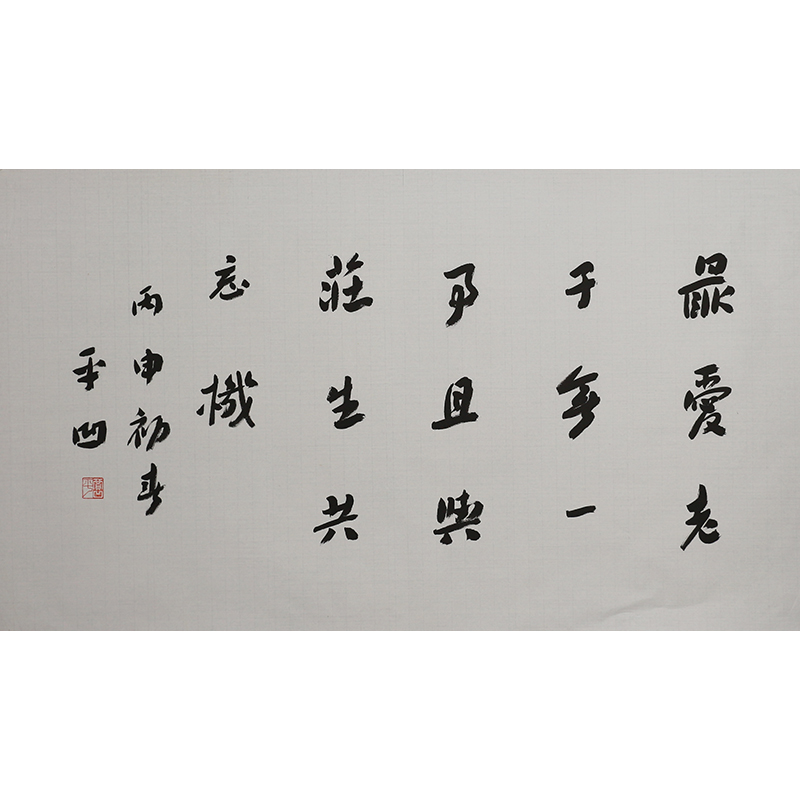 最愛老
于無一
事且與
莊生共
忘機
丙申初春
平凹